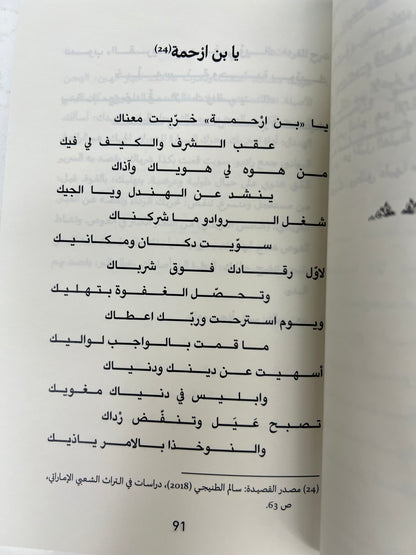 يا بن ازحمة(24)
يا «بن ازحمة» خرّبت معناك
عقب الشرف والكيف لي فيك
من هوه لي هوياك وآذاك
ينشد عن الهندل ويا الجيك
شغل الروادو ما شركناك
سوّيت دكان ومكانيك
لاوّل رقادك فوق شرباك
وتحصّل الغفوة بتهليك
ويوم استرحت وربّك اعطاك
ما قمت بالواجب لواليك
أسهيت عن دينك ودنياك
وابليس في دنياك مغويك
تصبح عَيَل وتنفّض رْداك
والنوخذا بالامر ياذيك
(24) مصدر القصيدة: سالم الطنيجي (2018)، دراسات في التراث الشعبي الإماراتي،
ص 63.
91